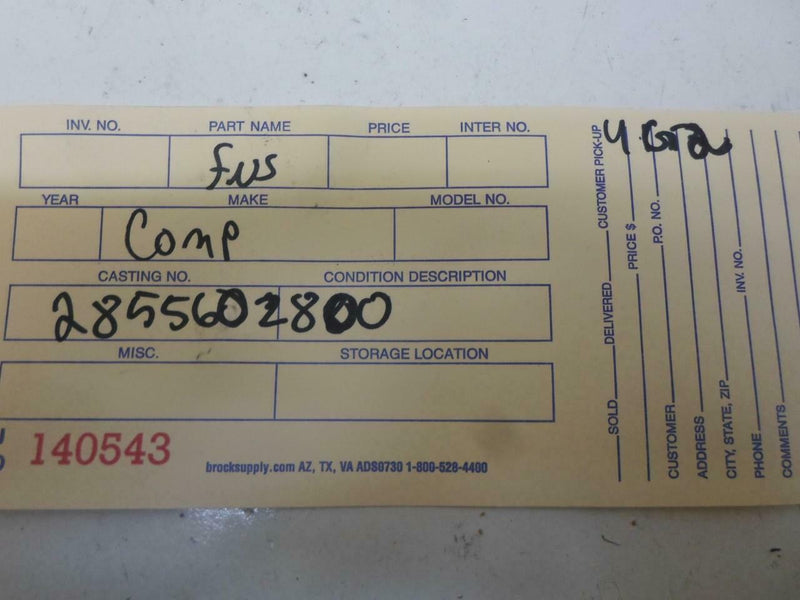 INV. NO. PART NAME PRICE INTER NO.
fus
YEAR MAKE MODEL NO.
Comp
CASTING NO. CONDITION DESCRIPTION
2855602800
MISC. STORAGE LOCATION
140543
brocksupply.com AZ, TX, VA ADS0730 1-800-528-4400
SOLD DELIVERED CUSTOMER PICK-UP
PRICE $
CUSTOMER P.O. NO.
ADDRESS
CITY, STATE, ZIP INV. NO.
PHONE
COMMENTS